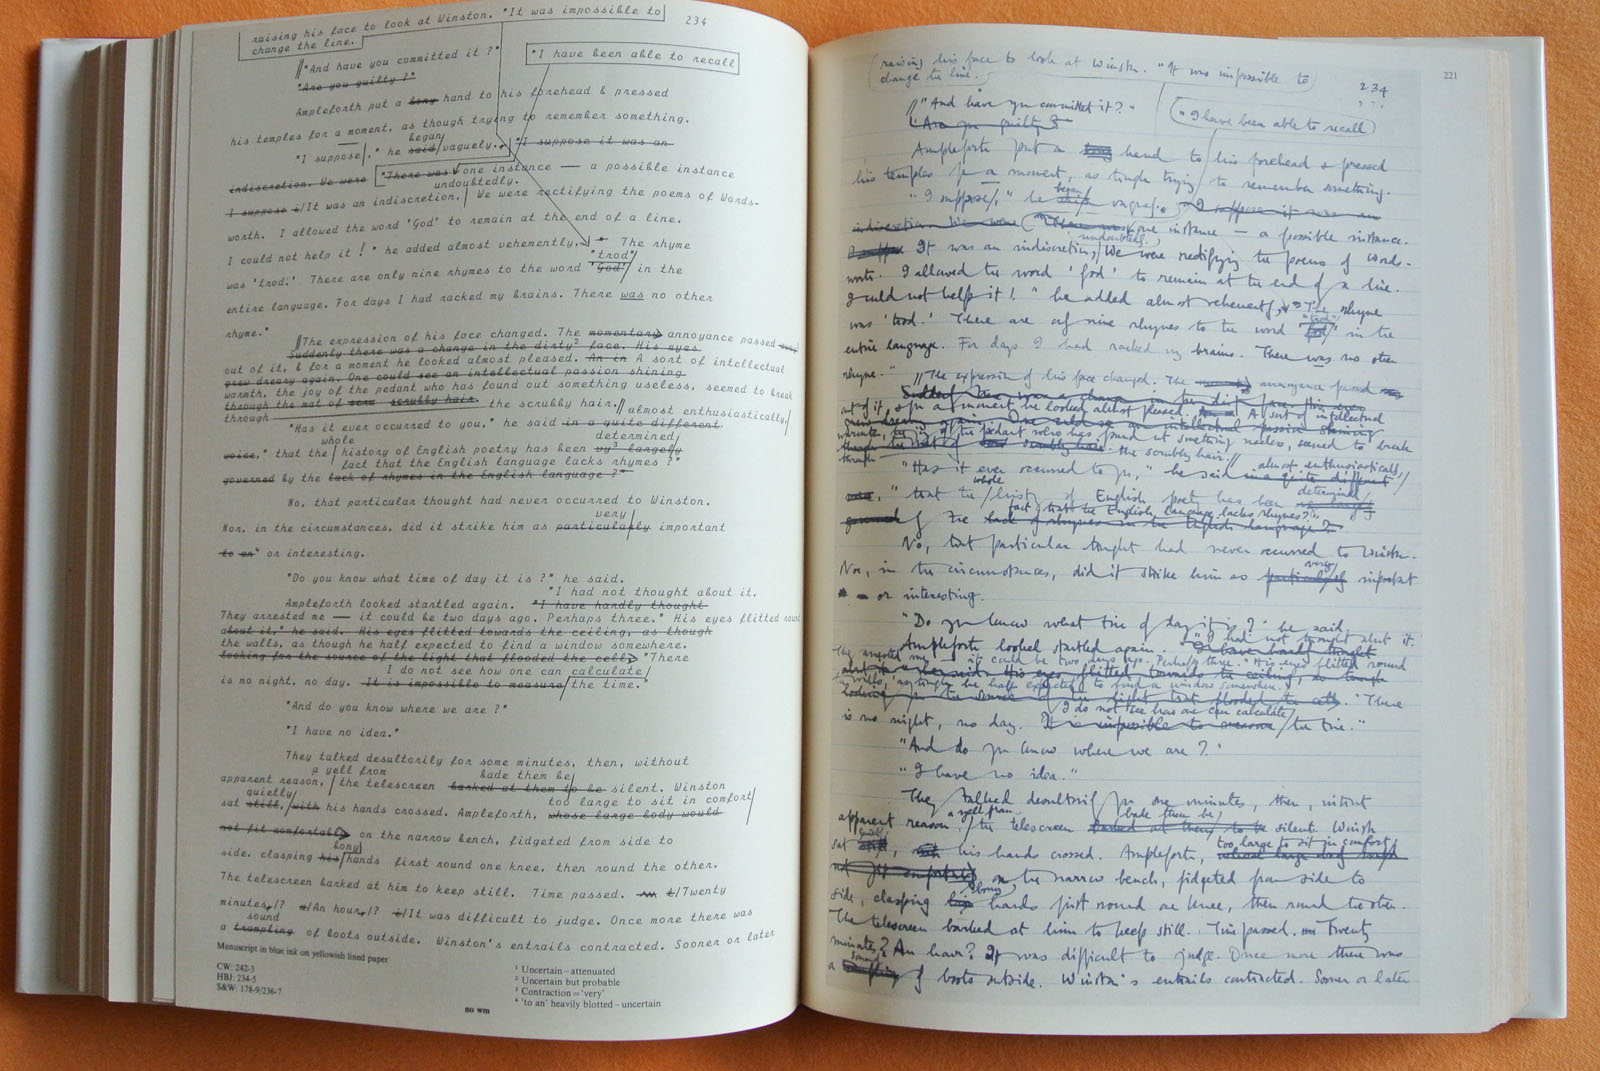 raising his face to look at Winston. "It was impossible to
change the line.
234
"And have you committed it?"
"I have been able to recall
"Are you guilty?"
Ampleforth put a bony hand to his forehead & pressed
his temples for a moment, as though trying to remember something.
began
"I suppose," he said vaguely. "I suppose it was an
indiscretion. We were "There was one instance — a possible instance
undoubtedly.
I suppose i/It was an indiscretion. We were rectifying the poems of Words-
worth. I allowed the word 'God' to remain at the end of a line.
I could not help it!" he added almost vehemently, " The rhyme
"trod"
was 'trod.' There are only nine rhymes to the word "God" in the
entire language. For days I had racked my brains. There was no other
rhyme."
The expression of his face changed. The momentary annoyance passed away
Suddenly there was a change in the dirty² face. His eyes
out of it, & for a moment he looked almost pleased. An in A sort of intellectual
grew dreamy again. One could see an intellectual passion shining
warmth, the joy of the pedant who has found out something useless, seemed to break
through the mat of scrubby hair. the scrubby hair.
through almost enthusiastically,
"Has it ever occurred to you," he said in a quite different
whole determined,
voice, "that the history of English poetry has been by³ largely
fact that the English language lacks rhymes?"
governed by the lack of rhymes in the English language?"
No, that particular thought had never occurred to Winston.
very
Nor, in the circumstances, did it strike him as particularly important
to an⁴ or interesting.
"Do you know what time of day it is?" he said.
"I had not thought about it.
Ampleforth looked startled again. "I have hardly thought
They arrested me — it could be two days ago. Perhaps three." His eyes flitted round
about it," he said. His eyes flitted towards the ceiling, as though
the walls, as though he half expected to find a window somewhere.
looking for the source of the light that flooded the cell. "There
I do not see how one can calculate
is no night, no day. It is impossible to measure the time."
"And do you know where we are?"
"I have no idea."
They talked desultorily for some minutes, then, without
a yell from bade them be
apparent reason, the telescreen barked at them to be silent. Winston
quietly too large to sit in comfort
sat still, with his hands crossed. Ampleforth, whose large body would
not fit comfortably on the narrow bench, fidgeted from side to
bony
side, clasping his hands first round one knee, then round the other.
The telescreen barked at him to keep still. Time passed. Twenty
minutes,/? a/An hour,/? i/It was difficult to judge. Once more there was
sound
a trampling of boots outside. Winston's entrails contracted. Sooner or later
Manuscript in blue ink on yellowish lined paper
CW: 242-3
HBJ: 234-5
S&W: 178-9/236-7
¹ Uncertain – attenuated
² Uncertain but probable
³ Contraction = 'very'
⁴ 'to an' heavily blotted – uncertain
no wm
221
raising his face to look at Winston. "It was impossible to
change the line.
234
"And have you committed it?"
"I have been able to recall
"Are you guilty?
Ampleforth put a bony hand to his forehead & pressed
his temples for a moment, as though trying to remember something.
began
"I suppose," he said vaguely. "I suppose it was an
indiscretion. We were "There was one instance — a possible instance.
undoubtedly.
I suppose It was an indiscretion, We were rectifying the poems of Words-
worth. I allowed the word 'God' to remain at the end of a line.
I could not help it!" he added almost vehemently, "The rhyme
"trod"
was 'trod.' There are only nine rhymes to the word "God" in the
entire language. For days I had racked my brains. There was no other
rhyme."
The expression of his face changed. The annoyance passed
Suddenly there was a change in the dirty face. His eyes
out of it, & for a moment he looked almost pleased. A sort of intellectual
grew dreamy again. One could see an intellectual passion shining
warmth, the joy of the pedant who has found out something useless, seemed to break
through the mat of scrubby hair. the scrubby hair.
through almost enthusiastically,
"Has it ever occurred to you," he said in a quite different
whole determined,
voice, "that the history of English poetry has been largely
fact that the English language lacks rhymes?"
governed by the lack of rhymes in the English language?
No, that particular thought had never occurred to Winston.
very
Nor, in the circumstances, did it strike him as particularly important
or interesting.
"Do you know what time of day it is?" he said.
"I had not thought about it.
Ampleforth looked startled again. "I have hardly thought
They arrested me — it could be two days ago. Perhaps three." His eyes flitted round
about it," he said. His eyes flitted towards the ceiling, as though
the walls, as though he half expected to find a window somewhere.
looking for the source of the light that flooded the cell. "There
I do not see how one can calculate
is no night, no day. It is impossible to measure the time."
"And do you know where we are?"
"I have no idea."
They talked desultorily for some minutes, then, without
a yell from bade them be
apparent reason, the telescreen barked at them to be silent. Winston
quietly too large to sit in comfort
sat still, with his hands crossed. Ampleforth, whose large body would
not fit comfortably on the narrow bench, fidgeted from side to
bony
side, clasping his hands first round one knee, then round the other.
The telescreen barked at him to keep still. Time passed. Twenty
minutes? An hour? It was difficult to judge. Once more there was
sound
a trampling of boots outside. Winston's entrails contracted. Sooner or later